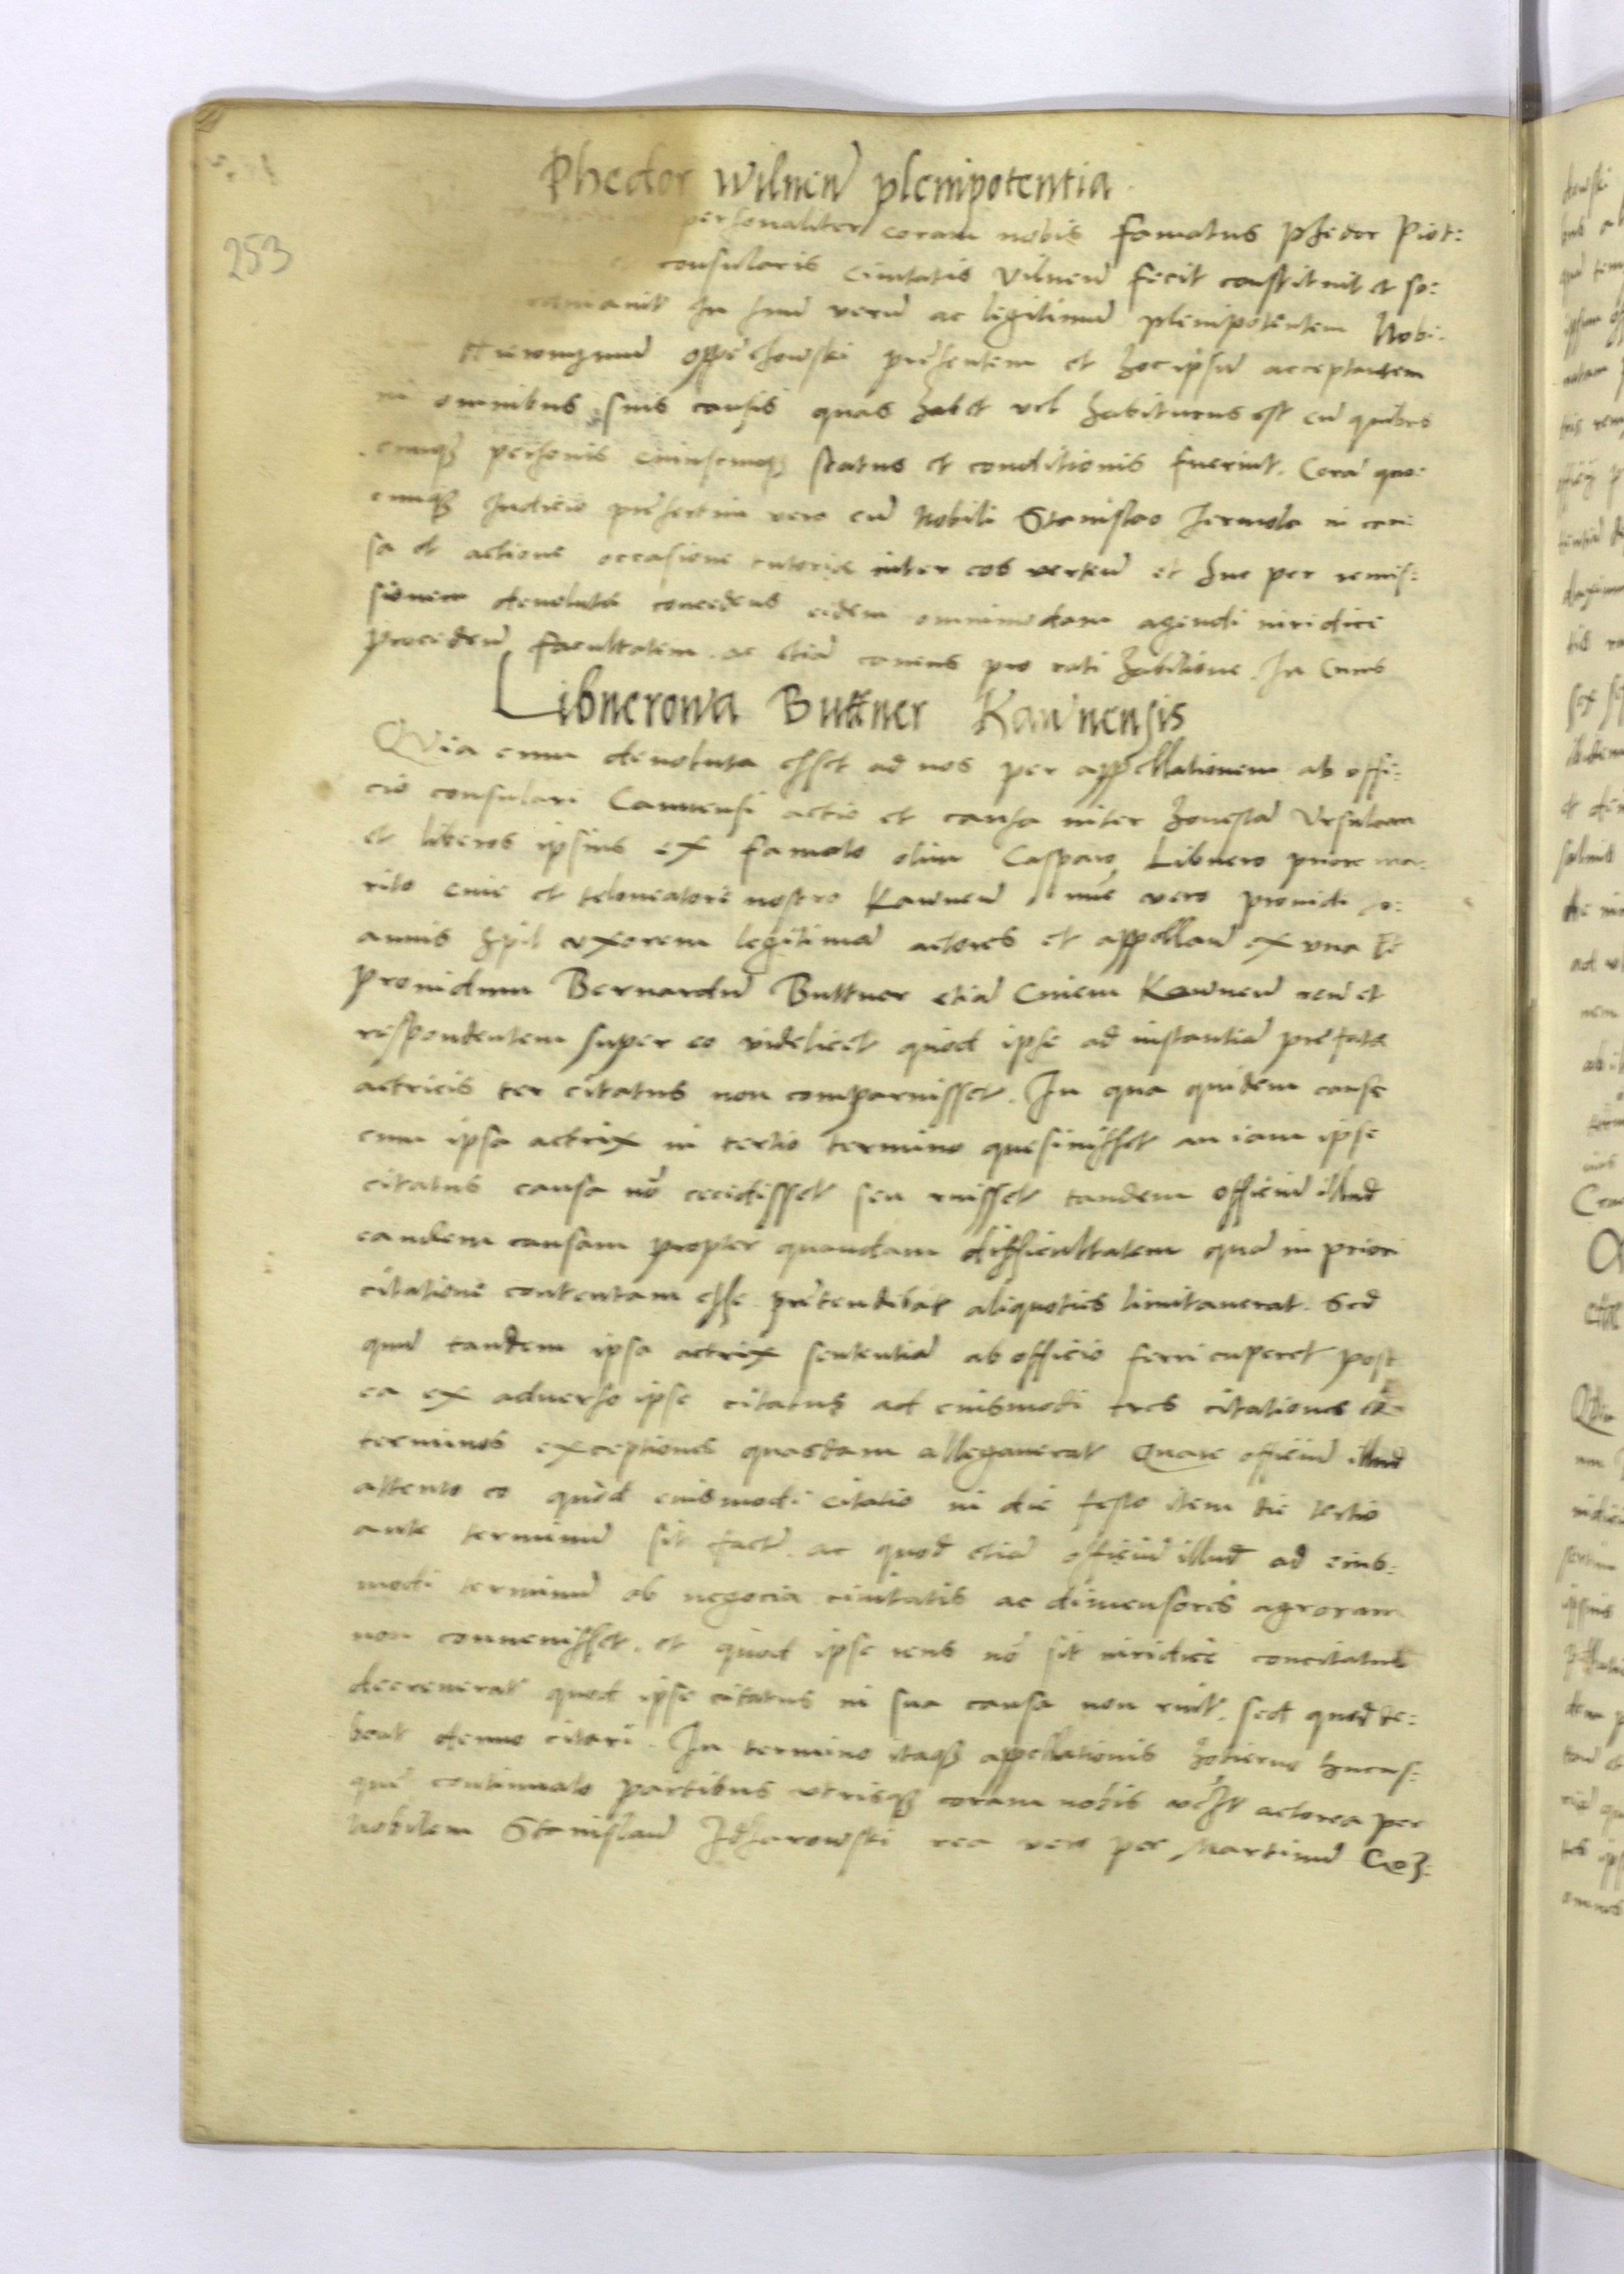 Phedor Wilnen̄ plenipotentia
253
personaliter coram nobis famatus Phedor Piot:
consularis Ciuitatis Vilnen̄ fecit constituit et so:
In suu̅ veru̅ ac legitimu̅ plenipotentem Nobi:
Hieronymu̅ oppechowski presentem et hoc ipsu̅ acceptantem
in omnibus suis causis quas habet vel habiturus est cu̅ quibus
cunq₃ personis cuiuscunq₃ status et conditionis fuerint. Cora̅ quo:
cunq₃ Iudicio presertim vero cu̅ Nobili Stanislao Jermola in cau:
sa et actione occasione tutoriæ inter eos verten̄ et huc per remis:
sionem deuoluta concedens eidem omnimodam agendi iuridice
proceden̄ facultatem. ac etia̅ cauens pro rati habitione. In Cuius
Libnerowa Buttner Kawnensis
Quia cum deuoluta esset ad nos per appellationem ab offi:
cio consulari Caunensi actio et causa inter honesta̅ Vrsulam
et liberos ipsius ex famato olim Casparo Libnero priore ma:
rito ciue et teloneatore nostro Kawnen̄ nu̅c vero prouidi Jo:
annis Hpil vxorem legitima̅ actores et appellan̄ ex vna Et
prouidum Bernardu̅ Buttner etia̅ Ciuem Kawnen̄ reu̅ et
respondentem super eo videlicet quod ipse ad instantia̅ prefatæ
actricis ter citatus non comparuisset. In qua quidem causa
cum ipsa actrix in tertio termino quesiuisset an iam ipse
citatus causa no̅ cecidisset seu ruisset tandem officiu̅ illud
eandem causam propter quandam difficultatem qua̅ in priori
citatione contentam esse pretendebat aliquoties limitauerat. Sed
quu̅ tandem ipsa actrix sententia̅ ab officio ferri cuperet post
ea ex aduerso ipse citatus ad eiusmodi tres citationes et
terminos exceptiones quasdam allegauerat Quare officiu̅ illud
attento eo quòd eiusmodi citatio in die festo item die tertio
ante terminu̅ sit facta. ac quod etia̅ officiu̅ illud ad eius:
modi terminu̅ ob negocia ciuitatis ac dimensores agrorum
non conuenisset. et quod ipse reus no̅ sit iuridice concitatus
decreuerat quod ipse citatus in sua causa non ruit. sed quod de:
beat denuo citari. In termino itaq₃ appellationis hodierno hucus:
que continuato partibus vtrisq₃ coram nobis actorea per
Nobilem Stanislau̅ rea vero per Martinu̅